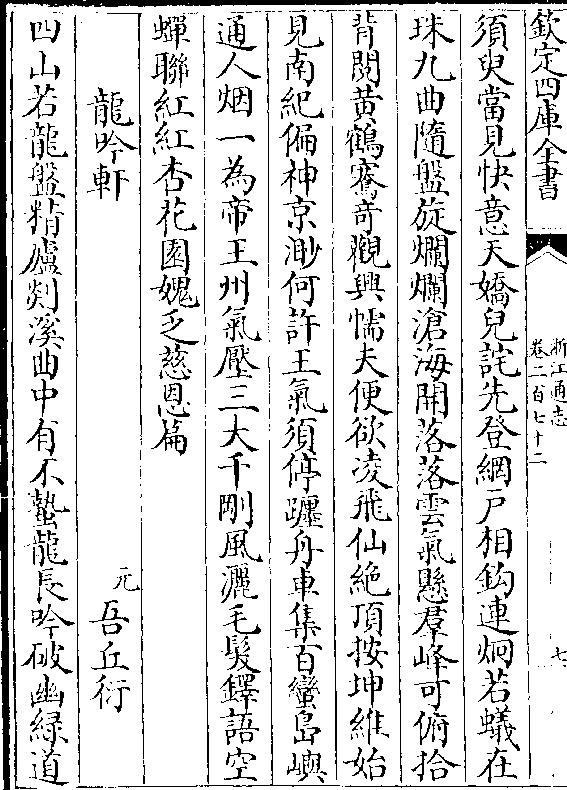 欽定四庫全書
浙江通志
卷二百七十二
七
須臾當見快意天嬌兒詫先登網戸相鈎連炯若蟻在
珠九曲隨盤旋爛爛滄海開落落雲氣懸羣峰可俯拾
背閲黄鶴騫竒觀興懦夫便欲凌飛仙絶頂按坤維始
見南紀偏神京渺何許王氣須停躔舟車集百蠻島嶼
通人烟一為帝王州氣壓三大千剛風灑毛髮鐸語空
蟬聯紅紅杏花園媿乏慈恩篇
龍吟軒
元
吾丘衍
四山若龍盤精廬剡溪曲中有不蟄龍長吟破幽緑道